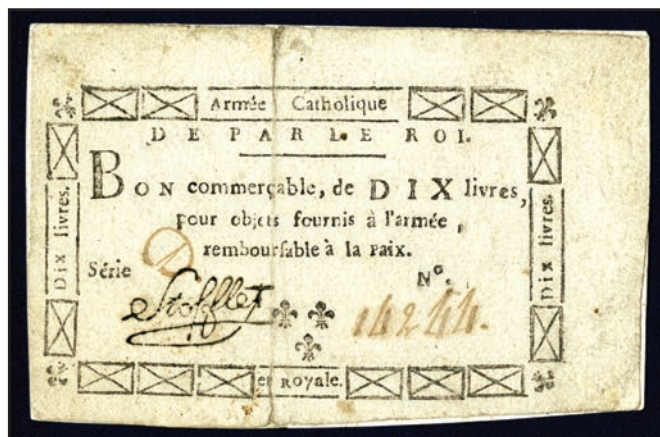 Armée Catholique
DE PAR LE ROI.
BON commerçable, de DIX livres,
pour objets fournis à l'armée,
remboursable à la paix.
Série
N°.
Stofflet
14244.
Dix livres.
Dix livres.
et Royale.